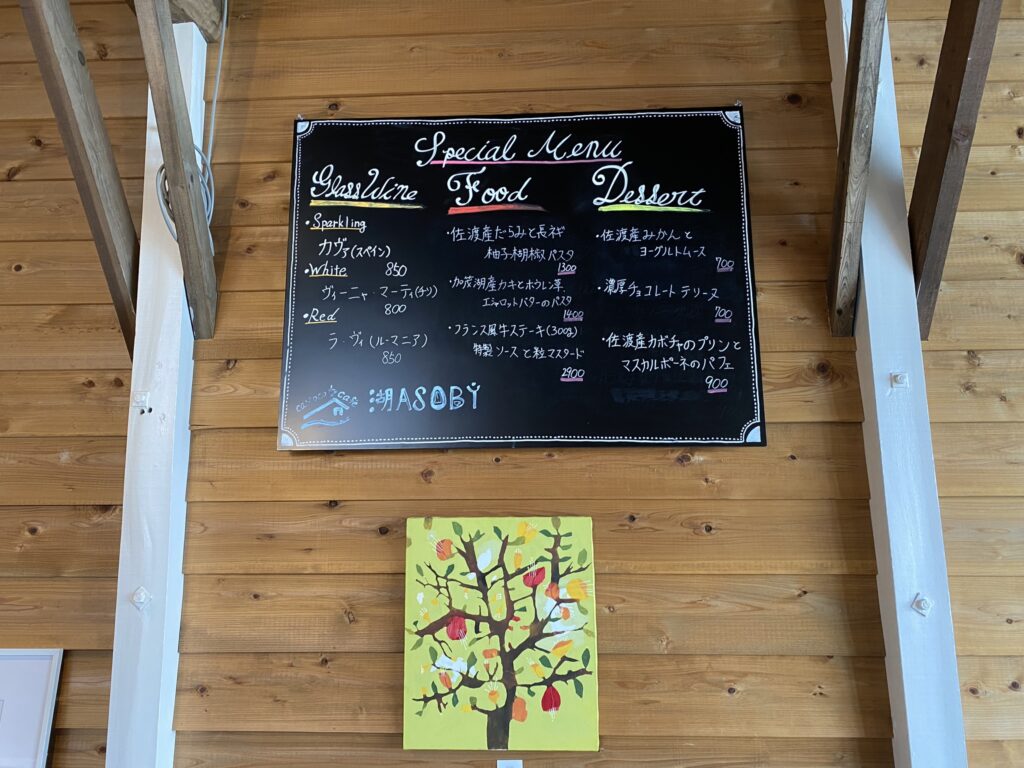 Special Menu
Glass Wine
・Sparkling
カヴァ(スペイン)
850
・White
ヴィーニャ・マーティ(チリ)
800
・Red
ラ・ヴィ(ルーマニア)
850
Food
・佐渡産たらみと長ネギ
柚子胡椒パスタ
1300
・加茂湖産カキとホウレン草
エシャロットバターのパスタ
1400
・フランス風牛ステーキ(300g)
特製ソースと粒マスタード
2900
Dessert
・佐渡産みかんと
ヨーグルトムース
700
・濃厚チョコレートテリーヌ
700
・佐渡産カボチャのプリンと
マスカルポーネのパフェ
900
湖ASOBY